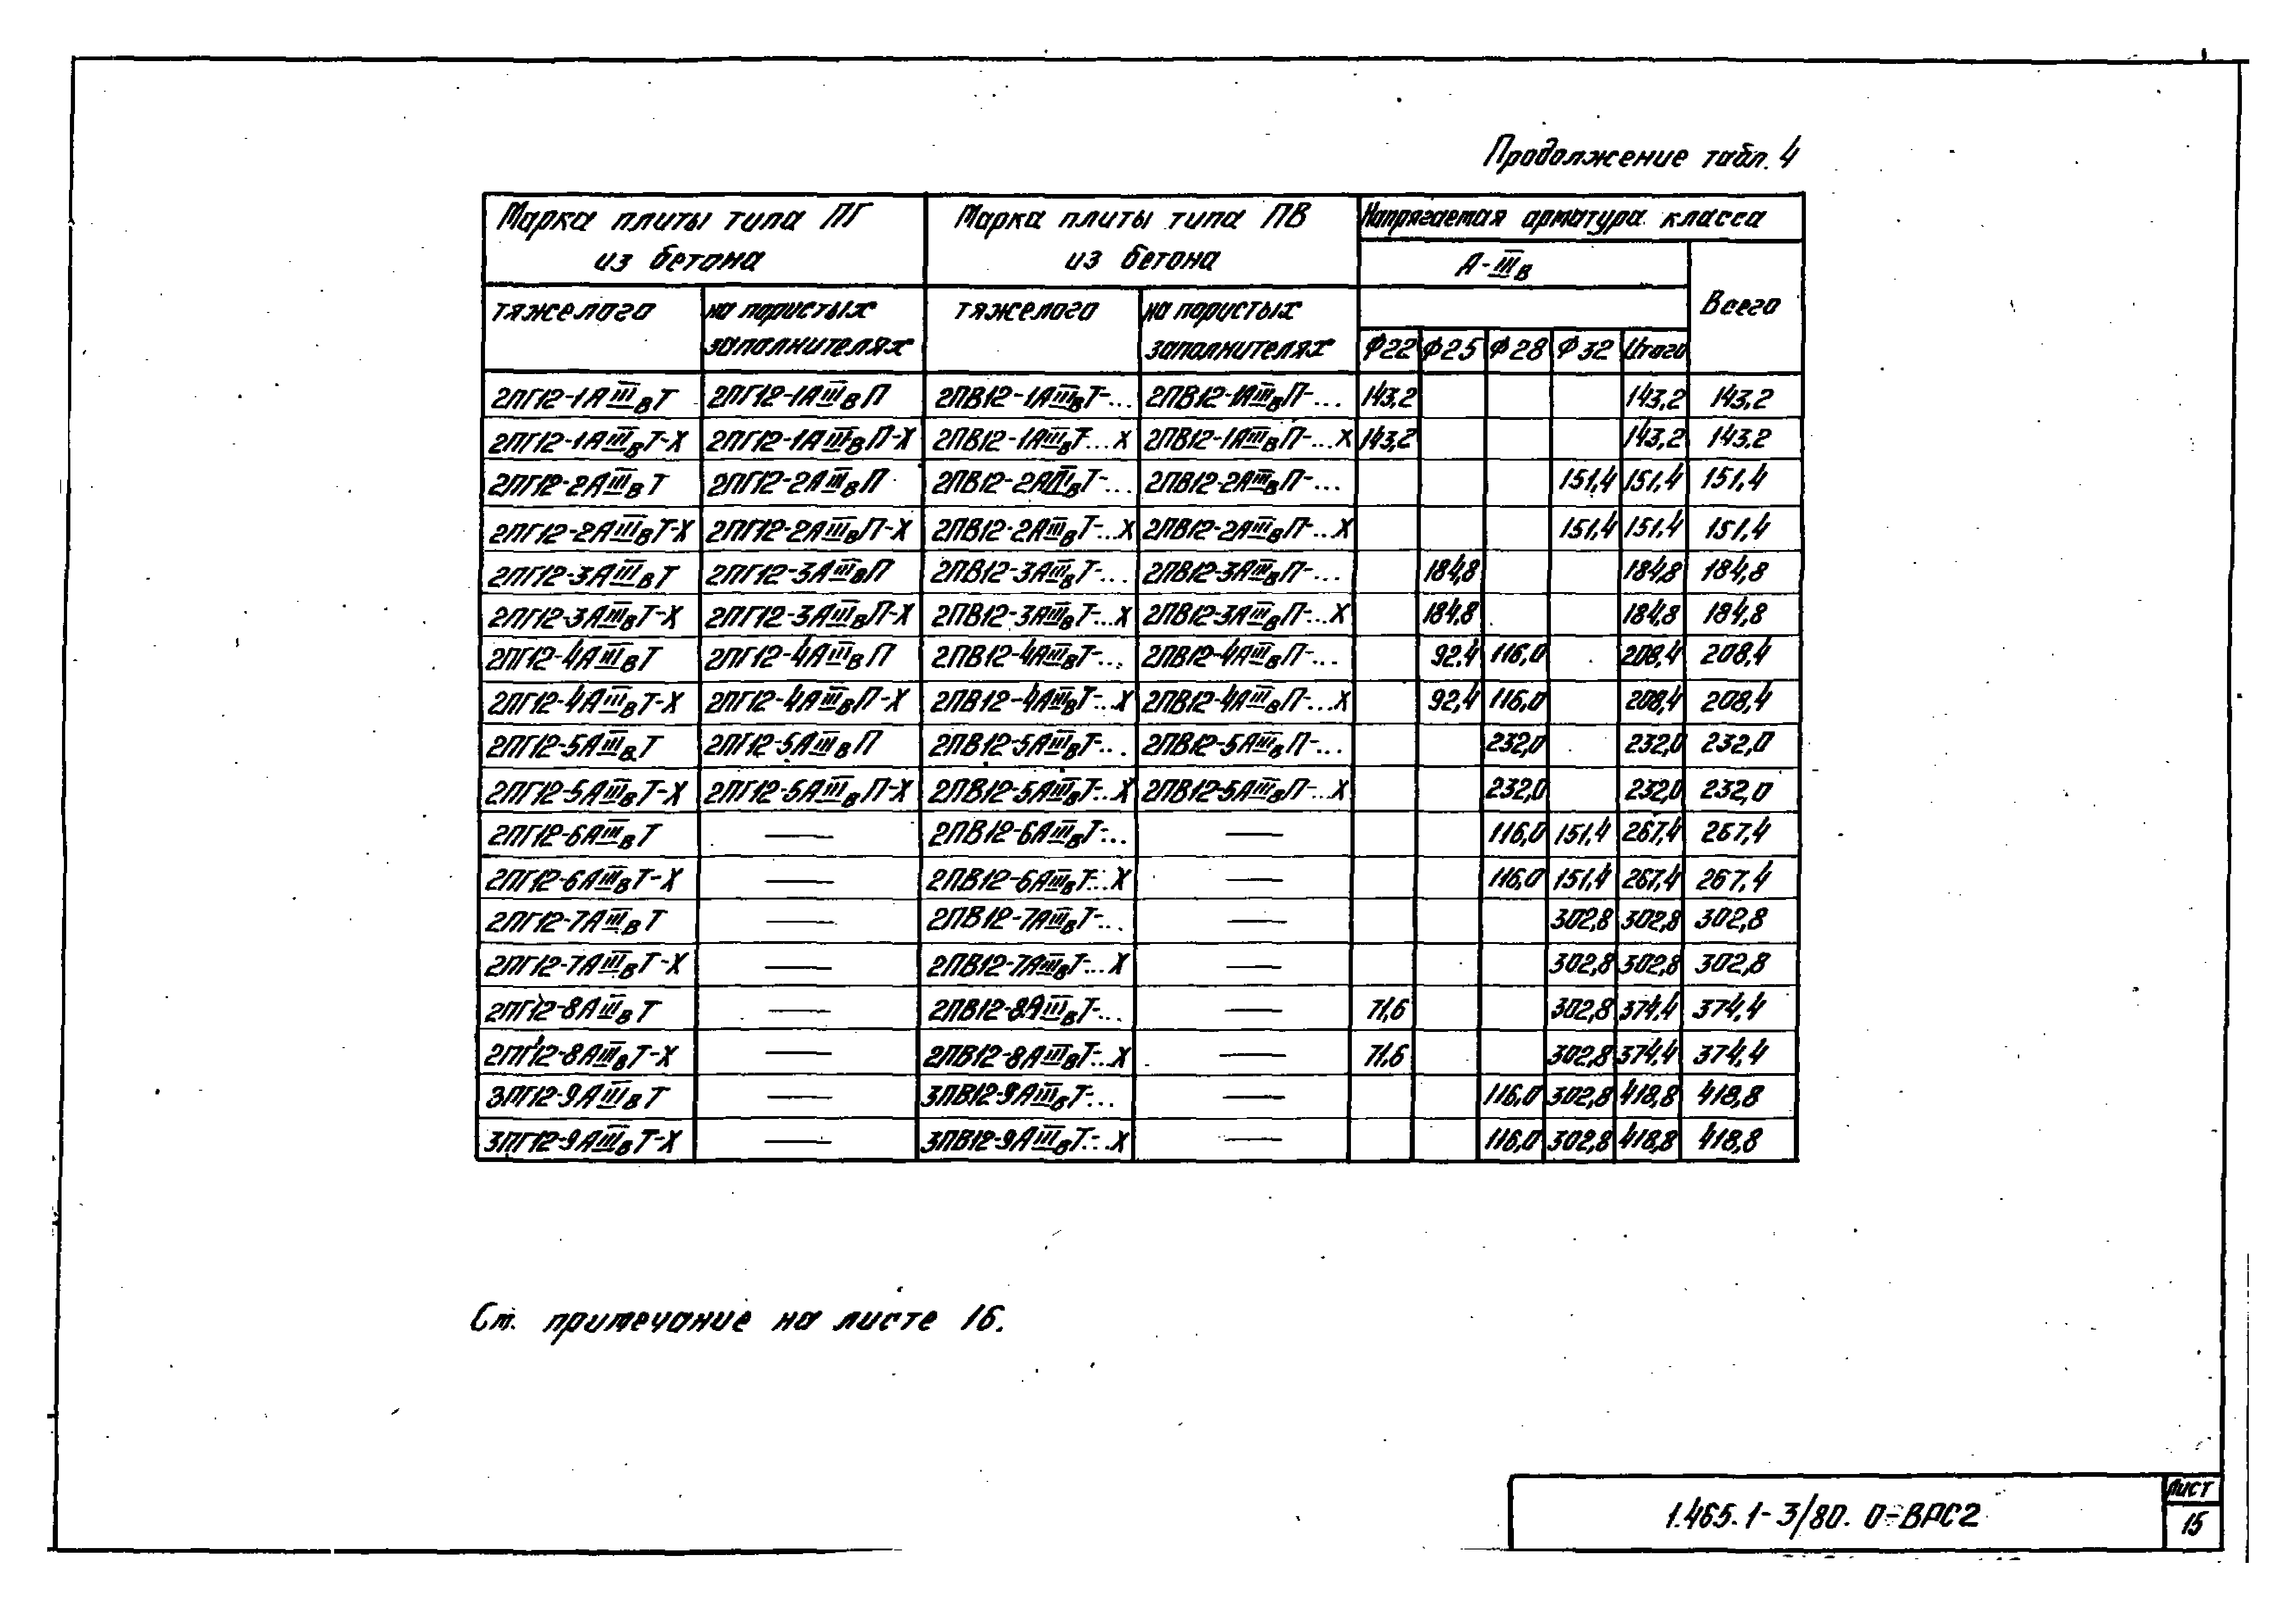 Продолжение табл. 4
Марка плиты типа ПГ из бетона | Марка плиты типа ПВ из бетона | Напрягаемая арматура класса
А-IIIв | Всего
тяжелого | на пористых заполнителях | тяжелого | на пористых заполнителях | Ф22 | Ф25 | Ф28 | Ф32 | Итого
2ПГ12-1АIIIвТ | 2ПГ12-1АIIIвП | 2ПВ12-1АIIIвТ-... | 2ПВ12-1АIIIвП-... | 143,2 | | | | 143,2 | 143,2
2ПГ12-1АIIIвТ-Х | 2ПГ12-1АIIIвП-Х | 2ПВ12-1АIIIвТ-...Х | 2ПВ12-1АIIIвП-...Х | 143,2 | | | | 143,2 | 143,2
2ПГ12-2АIIIвТ | 2ПГ12-2АIIIвП | 2ПВ12-2АIIIвТ-... | 2ПВ12-2АIIIвП-... | | | | 151,4 | 151,4 | 151,4
2ПГ12-2АIIIвТ-Х | 2ПГ12-2АIIIвП-Х | 2ПВ12-2АIIIвТ-...Х | 2ПВ12-2АIIIвП-...Х | | | | 151,4 | 151,4 | 151,4
2ПГ12-3АIIIвТ | 2ПГ12-3АIIIвП | 2ПВ12-3АIIIвТ-... | 2ПВ12-3АIIIвП-... | | 184,8 | | | 184,8 | 184,8
2ПГ12-3АIIIвТ-Х | 2ПГ12-3АIIIвП-Х | 2ПВ12-3АIIIвТ-...Х | 2ПВ12-3АIIIвП-...Х | | 184,8 | | | 184,8 | 184,8
2ПГ12-4АIIIвТ | 2ПГ12-4АIIIвП | 2ПВ12-4АIIIвТ-... | 2ПВ12-4АIIIвП-... | | 92,4 | 116,0 | | 208,4 | 208,4
2ПГ12-4АIIIвТ-Х | 2ПГ12-4АIIIвП-Х | 2ПВ12-4АIIIвТ-...Х | 2ПВ12-4АIIIвП-...Х | | 92,4 | 116,0 | | 208,4 | 208,4
2ПГ12-5АIIIвТ | 2ПГ12-5АIIIвП | 2ПВ12-5АIIIвТ-... | 2ПВ12-5АIIIвП-... | | | 232,0 | | 232,0 | 232,0
2ПГ12-5АIIIвТ-Х | 2ПГ12-5АIIIвП-Х | 2ПВ12-5АIIIвТ-...Х | 2ПВ12-5АIIIвП-...Х | | | 232,0 | | 232,0 | 232,0
2ПГ12-6АIIIвТ | — | 2ПВ12-6АIIIвТ-... | — | | | 116,0 | 151,4 | 267,4 | 267,4
2ПГ12-6АIIIвТ-Х | — | 2ПВ12-6АIIIвТ-...Х | — | | | 116,0 | 151,4 | 267,4 | 267,4
2ПГ12-7АIIIвТ | — | 2ПВ12-7АIIIвТ-... | — | | | | 302,8 | 302,8 | 302,8
2ПГ12-7АIIIвТ-Х | — | 2ПВ12-7АIIIвТ-...Х | — | | | | 302,8 | 302,8 | 302,8
2ПГ12-8АIIIвТ | — | 2ПВ12-8АIIIвТ-... | — | 71,6 | | | 302,8 | 374,4 | 374,4
2ПГ12-8АIIIвТ-Х | — | 2ПВ12-8АIIIвТ-...Х | — | 71,6 | | | 302,8 | 374,4 | 374,4
3ПГ12-9АIIIвТ | — | 3ПВ12-9АIIIвТ-... | — | | | 116,0 | 302,8 | 418,8 | 418,8
3ПГ12-9АIIIвТ-Х | — | 3ПВ12-9АIIIвТ-...Х | — | | | 116,0 | 302,8 | 418,8 | 418,8
См. примечание на листе 16.
1.465.1-3/80. 0-ВРС2
Лист
15